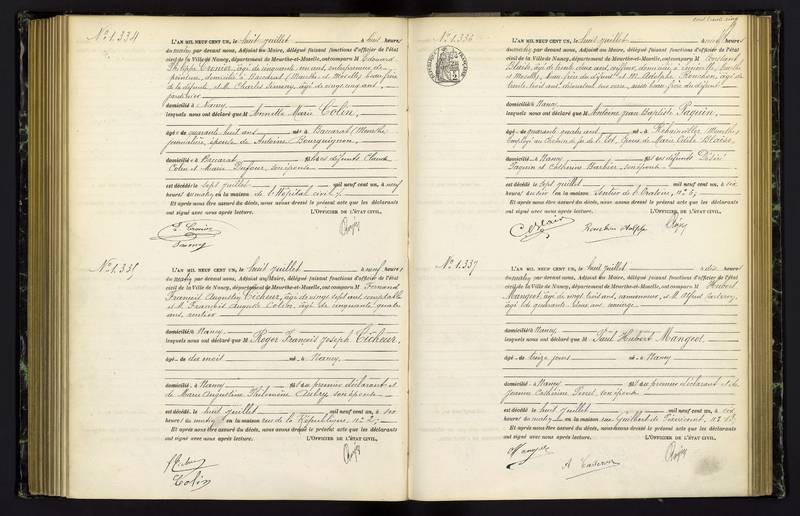 N° 1.334
L'AN MIL NEUF CENT UN, le huit juillet à huit heures
du matin, par devant nous, Adjoint au Maire, délégué faisant fonctions d'officier de l'état
civil de la Ville de Nancy, département de Meurthe-et-Moselle, ont comparu M Edouard
Philippe Cronier, âgé de cinquante un ans, entrepreneur de
peinture, domicilié à Baccarat (Meurthe et Moselle) beau frère
de la défunte, et M. Charles âgé de vingt cinq ans,
domicilié à Nancy
lesquels nous ont déclaré que M Annette Marie Colin,
âgée de quarante huit ans née à Baccarat (Meurthe)
journalière, épouse de Antoine Bourguignon,
domiciliée à Baccarat fille des défunts Claude
Colin et Marie Dufour, son épouse
est décédée le sept juillet mil neuf cent un, à neuf
heures du matin en la maison de l'Hôpital civil
Et après nous être assuré du décès, nous avons dressé le présent acte que les déclarants
ont signé avec nous après lecture. L'OFFICIER DE L'ÉTAT CIVIL,
N° 1.335
L'AN MIL NEUF CENT UN, le huit juillet à neuf heures
du matin, par devant nous, Adjoint au Maire, délégué faisant fonctions d'officier de l'état
civil de la Ville de Nancy, département de Meurthe-et-Moselle, ont comparu M Fernand
François Augustin Cicheur, âgé de vingt sept ans, comptable
et M. François Auguste Colin, âgé de cinquante quatre
ans, rentier
domicilié à Nancy
lesquels nous ont déclaré que M Roger François Joseph Cicheur,
âgé de dix mois né à Nancy
domicilié à Nancy fils du premier déclarant et
de Marie Augustine Philomène Aubry son épouse
est décédé le huit juillet mil neuf cent un, à six
heures du matin en la maison rue de la République, n° 25
Et après nous être assuré du décès, nous avons dressé le présent acte que les déclarants
ont signé avec nous après lecture. L'OFFICIER DE L'ÉTAT CIVIL,
Colin
N° 1.336
L'AN MIL NEUF CENT UN, le huit juillet à neuf heures
du matin, par devant nous, Adjoint au Maire, délégué faisant fonctions d'officier de l'état
civil de la Ville de Nancy, département de Meurthe-et-Moselle, ont comparu M Constant
Blaise, âgé de trente deux ans, coiffeur, domicilié à Lunéville, Meurthe
et Moselle, beau frère du défunt et M. Adolphe âgé de
trente huit ans, aussi beau frère du défunt
domicilié à Nancy
lesquels nous ont déclaré que M Antoine Jean Baptiste Paquin,
âgé de quarante quatre ans né à Réhainviller (Meurthe)
Employé au Chemin de fer de l'Est, Epoux de Marie Odile Blaise,
domicilié à Nancy fils des défunts Désiré
Paquin et Catherine Barbier, son épouse
est décédé le sept juillet mil neuf cent un, à six
heures du soir en la maison Sentier de l'Oratoire, n° 6
Et après nous être assuré du décès, nous avons dressé le présent acte que les déclarants
ont signé avec nous après lecture. L'OFFICIER DE L'ÉTAT CIVIL,
N° 1.337
L'AN MIL NEUF CENT UN, le huit juillet à dix heures
du matin, par devant nous, Adjoint au Maire, délégué faisant fonctions d'officier de l'état
civil de la Ville de Nancy, département de Meurthe-et-Moselle, ont comparu M Hubert
Mangeot, âgé de vingt trois ans, et M. Alfred
âgé de quarante deux ans, concierge
domicilié à Nancy
lesquels nous ont déclaré que M Paul Hubert Mangeot,
âgé de treize jours né à Nancy
domicilié à Nancy fils du premier déclarant et de
Jeanne Catherine son épouse
est décédé le huit juillet mil neuf cent un, à six
heures du matin en la maison rue Guilbert de Pixérécourt, n° 15
Et après nous être assuré du décès, nous avons dressé le présent acte que les déclarants
ont signé avec nous après lecture. L'OFFICIER DE L'ÉTAT CIVIL,